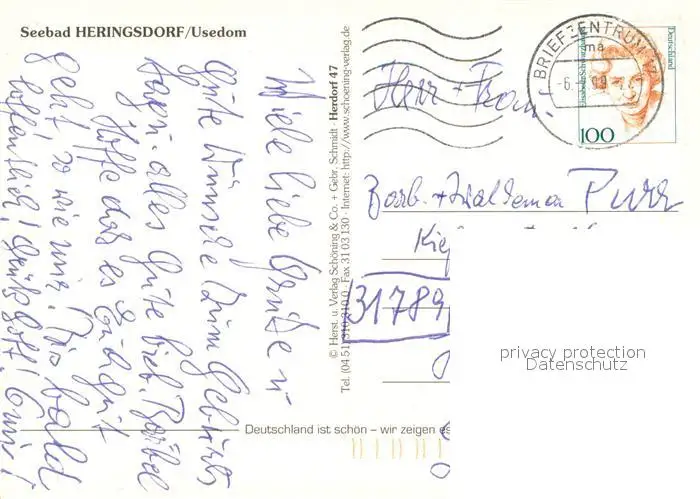 Seebad HERINGSDORF/Usedom
Viele liebe Grüße u
Gute Wünsche zum Geburts
tag u. alles Gute lieb. Bärbel
Hoffe das es Euch gut
geht so wie mir! Bis bald
hoffentlich! Grüß Gott!
© Herst. u. Verlag Schöning & Co. + Gebr. Schmidt · Herdorf 47
Tel. (04 51) 310 310 0 · Fax 31 03 130 · Internet: http://www.schoening-verlag.de
BRIEFZENTRUM 17
ma
-6.
99
Deutschland
100
Herr + Frau
Barb. + Waldemar Purr
31789
privacy protection
Datenschutz
Deutschland ist schön – wir zeigen es